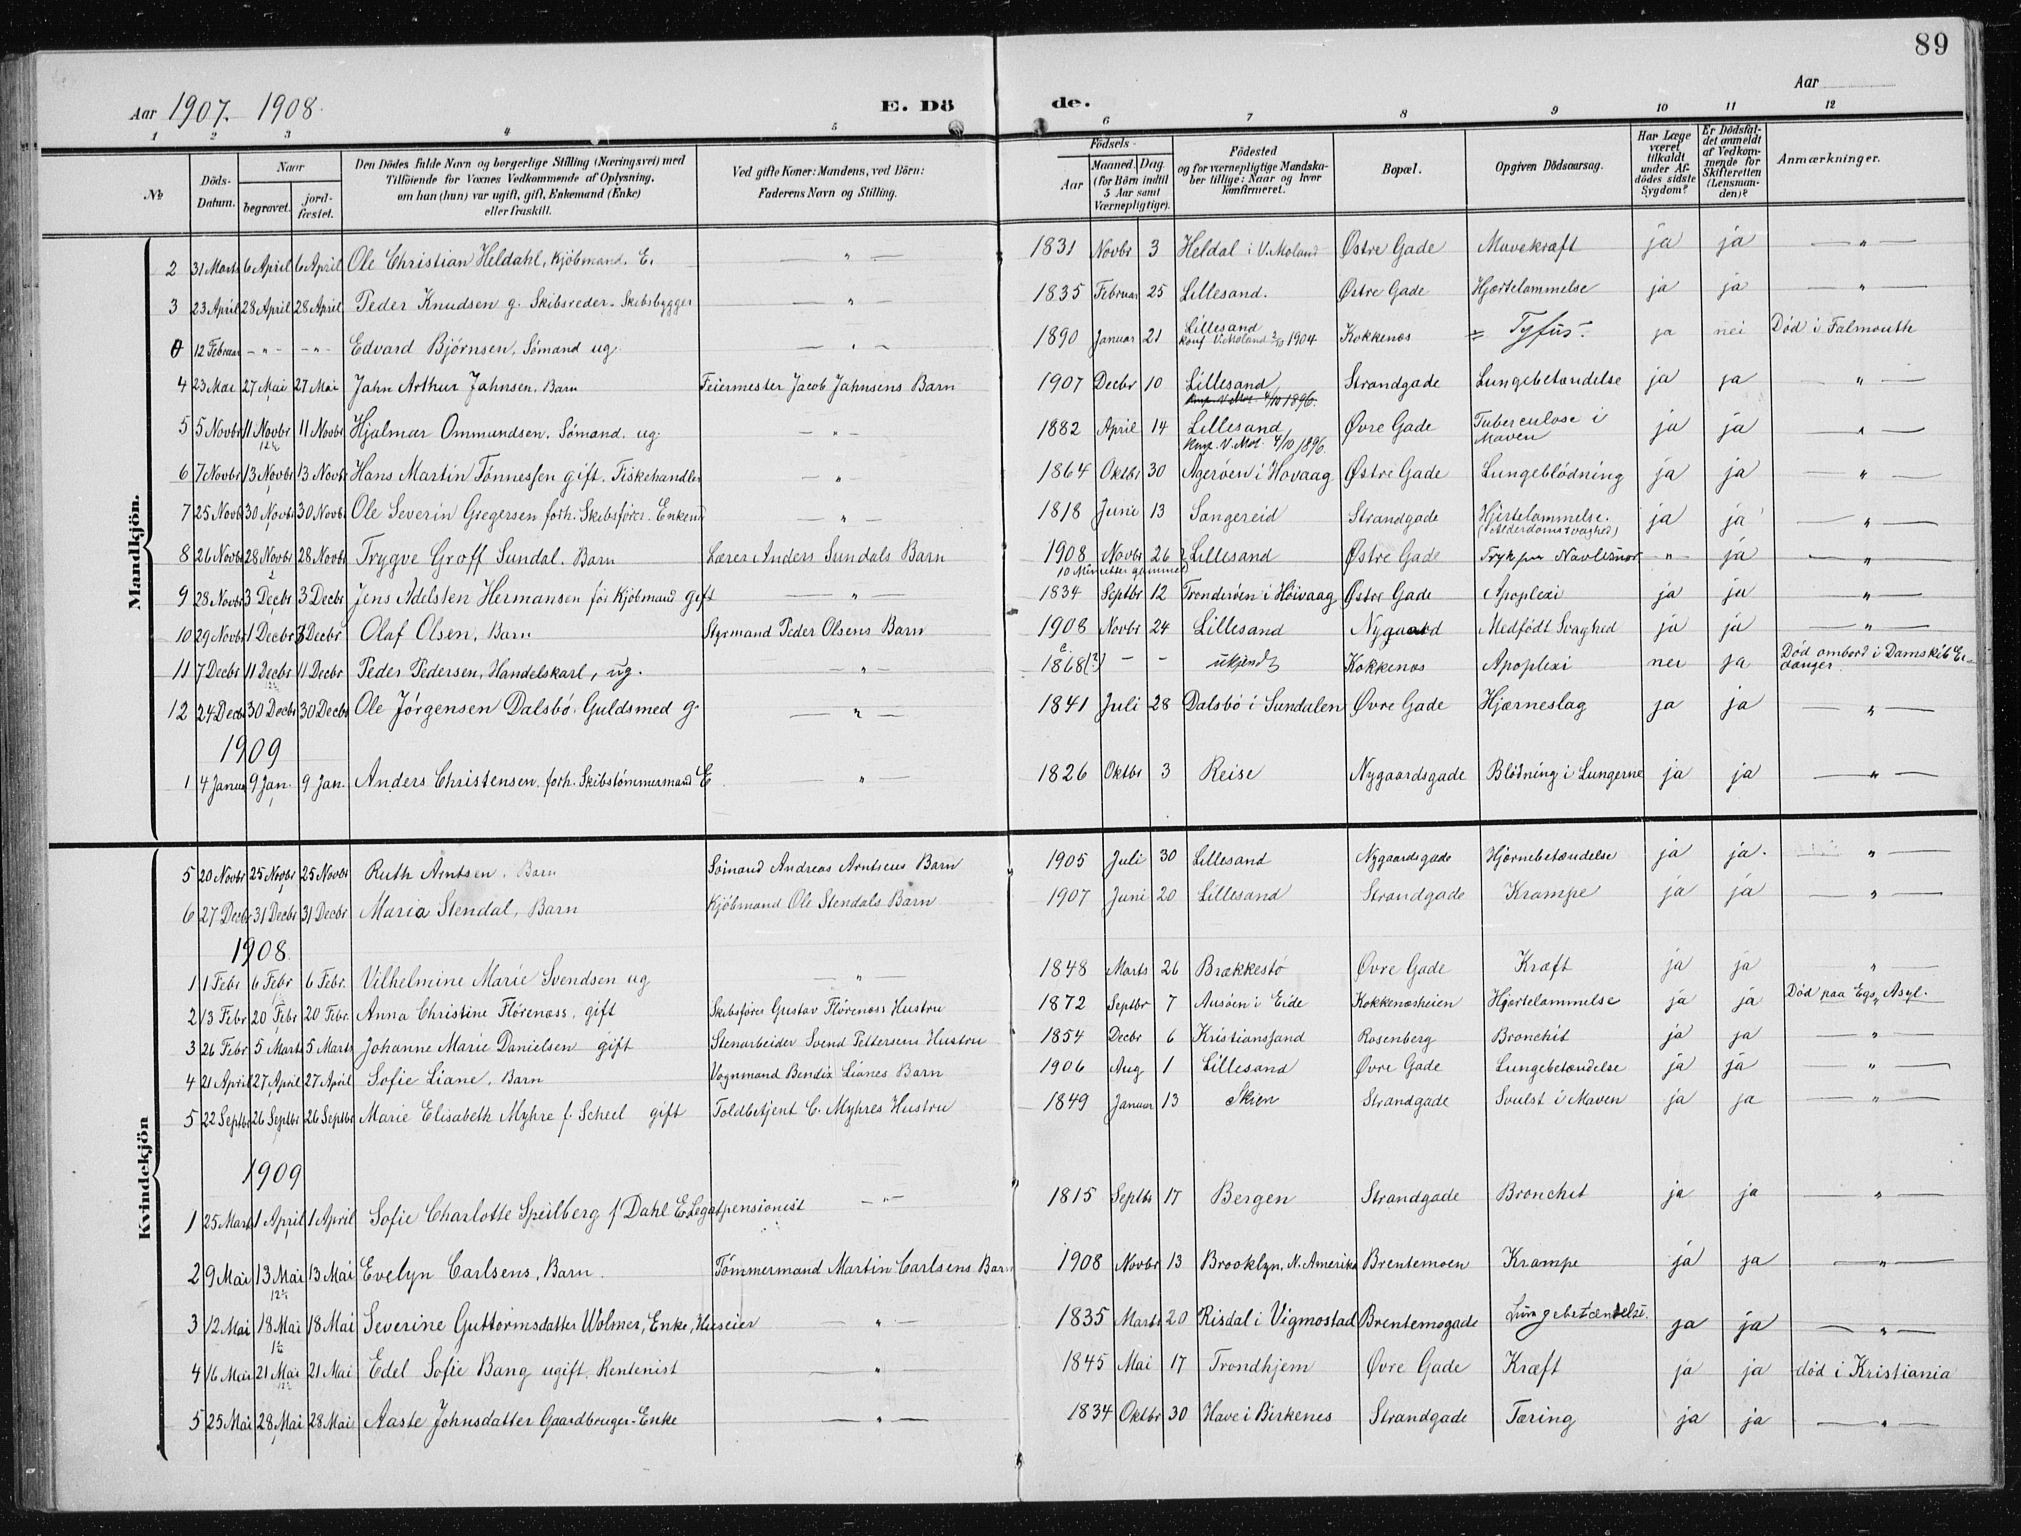 89
Aar 1907. 1908. E. Dö de. Aar
1 2 3 4 5 6 7 8 9 10 11 12
No. Döds-Datum. Naar begravet. jord-fæstet. Den Dödes fulde Navn og borgerlige Stilling (Næringsvei) med Tilföiende for Voxnes Vedkommende af Oplysning, om han (hun) var ugift, gift, Enkemand (Enke) eller fraskilt. Ved gifte Koner: Mandens, ved Börn: Faderens Navn og Stilling. Födsels- Aar Maaned. Dag. (for Börn indtil 5 Aar samt Værnepligtige). Födested og for værnepligtige Mandskaber tillige: Naar og hvor Konfirmeret. Bopæl. Opgiven Dödsaarsag. Har Læge været tilkaldt under Afdödes sidste Sygdom? Er Dödsfaldet anmeldt af Vedkommende for Skifteretten (Lensmanden)? Anmærkninger.
Mandkjön.
2 31 Marts 6 April 6 April Ole Christian Heldahl, Kjöbmand. E. — " — 1831 Novbr 3 Heldal i V. Moland Østre Gade Mavekræft ja ja — " —
3 23 April 28 April 28 April Peder Knudsen g. Skibsreder - Skibsbygger — " — 1835 Februar 25 Lillesand. Østre Gade Hjertelammelse ja ja — " —
0 12 Februar - " - - " - Edvard Björnsen, Sömand ug — " — 1890 Januar 21 Lillesand Konf V. Moland 2/10 1904 Kokkenæs = Tyfus - ja nei Död i Falmouth
4 23 Mai 27 Mai 27 Mai Jahn Arthur Jahnsen, Barn Feiermester Jacob Jahnsens Barn 1907 Decbr 10 Lillesand, Strandgade Lungebetændelse ja ja — " —
Knf. V. Mol. 4/10 1896.
5 5 Novbr 11 Novbr 11 Novbr Hjalmar Ommundsen. Sömand. ug. — " — 1882 April 14 Lillesand Knf. V. Mol. 4/10 1896. Øvre Gade Tuberculose i Maven ja ja — " —
6 7 Novbr 13 Novbr 13 Novbr Hans Martin Tönnessen gift. Fiskehandler — " — 1864 Oktbr 30 Ageröen i Hövaag Østre Gade Lungeblödning ja ja — " —
7 25 Novb 30 Novbr 30 Novbr. Ole Severin Gregersen forh. Skibsförer. Enkem — " — 1818 Juni 13 Sangereid Strandgade Hjertelammelse. (Alderdomssvaghed) ja ja — " —
8 26 Novbr 28 Novbr 28 Novbr Trygve Groff Sundal. Barn Lærer Anders Sundals Barn 1908 Novbr 26 Lillesand Østre Gade Tryk paa Navlesnor - " - ja — " —
10 Minutter gammel
9 28 Novbr 3 Decbr 3 Decbr Jens Adelsten Hermansen för Kjöbmand gift — " — 1834 Septbr 12 Tronderöen i Höivaag Østre Gade Apoplexi ja ja — " —
10 29 Novbr 1 Decbr 3 Decbr Olaf Olsen, Barn Styrmand Peder Olsens Barn 1908 Novbr 24 Lillesand Nygaard Medfödt Svaghed ja ja — " —
11 7 Decbr 11 Decbr 11 Decbr Peder Pedersen, Handelskarl, ug. " 1868 (?) - - ukjendt Kokkenæs Apoplexi nei ja Död ombord i Damskib Eidanger
12 24 Decbr 30 Decbr 30 Decbr Ole Jörgensen Dalsbö. Guldsmed g. — " — 1841 Juli 28 Dalsbö i Sundalen Øvre Gade Hjærneslag ja ja — " —
1909
1 4 Januar 9 Jan. 9 Jan. Anders Christensen. forh. Skibstömmermand E — " — 1826 Oktbr 3 Reise Nygaardsgade Blödning i Lungerne ja ja — " —
Kvindekjön
5 20 Novbr 25 Novbr 25 Novbr Ruth Arntsen. Barn Sömand Andreas Arntsens Barn 1905 Juli 30 Lillesand Nygaardsgade Hjernebetændelse ja ja. — " —
6 27 Decbr 31 Decbr 31 Decbr Maria Stendal, Barn Kjöbmand Ole Stendals Barn 1907 Juni 20 Lillesand Strandgade Krampe ja ja — " —
1908.
1 1 Febr 6 Febr 6 Febr. Vilhelmine Marie Svendsen ug — " — 1848 Marts 26 Brækkestö Øvre Gade Kræft ja ja — " —
2 13 Febr 20 Febr 20 Febr. Anna Christine Flörenæss, gift Skibsförer Gustav Flörenæss Hustru 1872 Septbr 7 Ausöen i Eide Kokkenæsheien Hjertelammelse ja ja Död paa Egs Asyl.
3 26 Febr 5 Marts 5 Marts Johanne Marie Danielsen gift Stenarbeider Svend Pettersens Hustru 1854 Decbr 6 Kristianssand Rosenberg Bronchit ja ja — " —
4 21 April 27 April 27 April Sofie Liane. Barn Vognmand Bendix Lianes Barn 1906 Aug 1 Lillesand Øvre Gade Lungebetændelse ja ja — " —
5 22 Septbr 26 Septbr 26 Septbr Marie Elisabeth Myhre f. Scheel gift Toldbetjent C. Myhres Hustru 1849 Januar 13 Skien Strandgade Svulst i Maven ja ja — " —
1909
1 25 Marts 1 April 1 April Sofie Charlotte Speilberg f Dahl E Legatpensionist — " — 1815 Septbr 17 Bergen Strandgade Bronchit ja ja — " —
2 9 Mai 13 Mai 13 Mai Evelyn Carlsens, Barn. Tömmermand Martin Carlsens Barn 1908 Novbr 13 Brooklyn, N. Amerika Brentemoen Krampe ja ja — " —
3 12 Mai 18 Mai 18 Mai Severine Guttormsdatter Wolmer, Enke, Huseier — " — 1835 Marts 20 Risdal i Vigmostad Brentemogade Lungebetændelse. ja ja — " —
4 16 Mai 21 Mai 21 Mai Edel Sofie Bang ugift. Rentenist — " — 1845 Mai 17 Trondhjem Øvre Gade Kræft ja ja död i Kristiania
5 25 Mai 28 Mai 28 Mai Aaste Johnsdatter Gaardbruger-Enke — " — 1834 Oktbr 30 Have i Birkenes Strandgade Tæring ja ja — " —